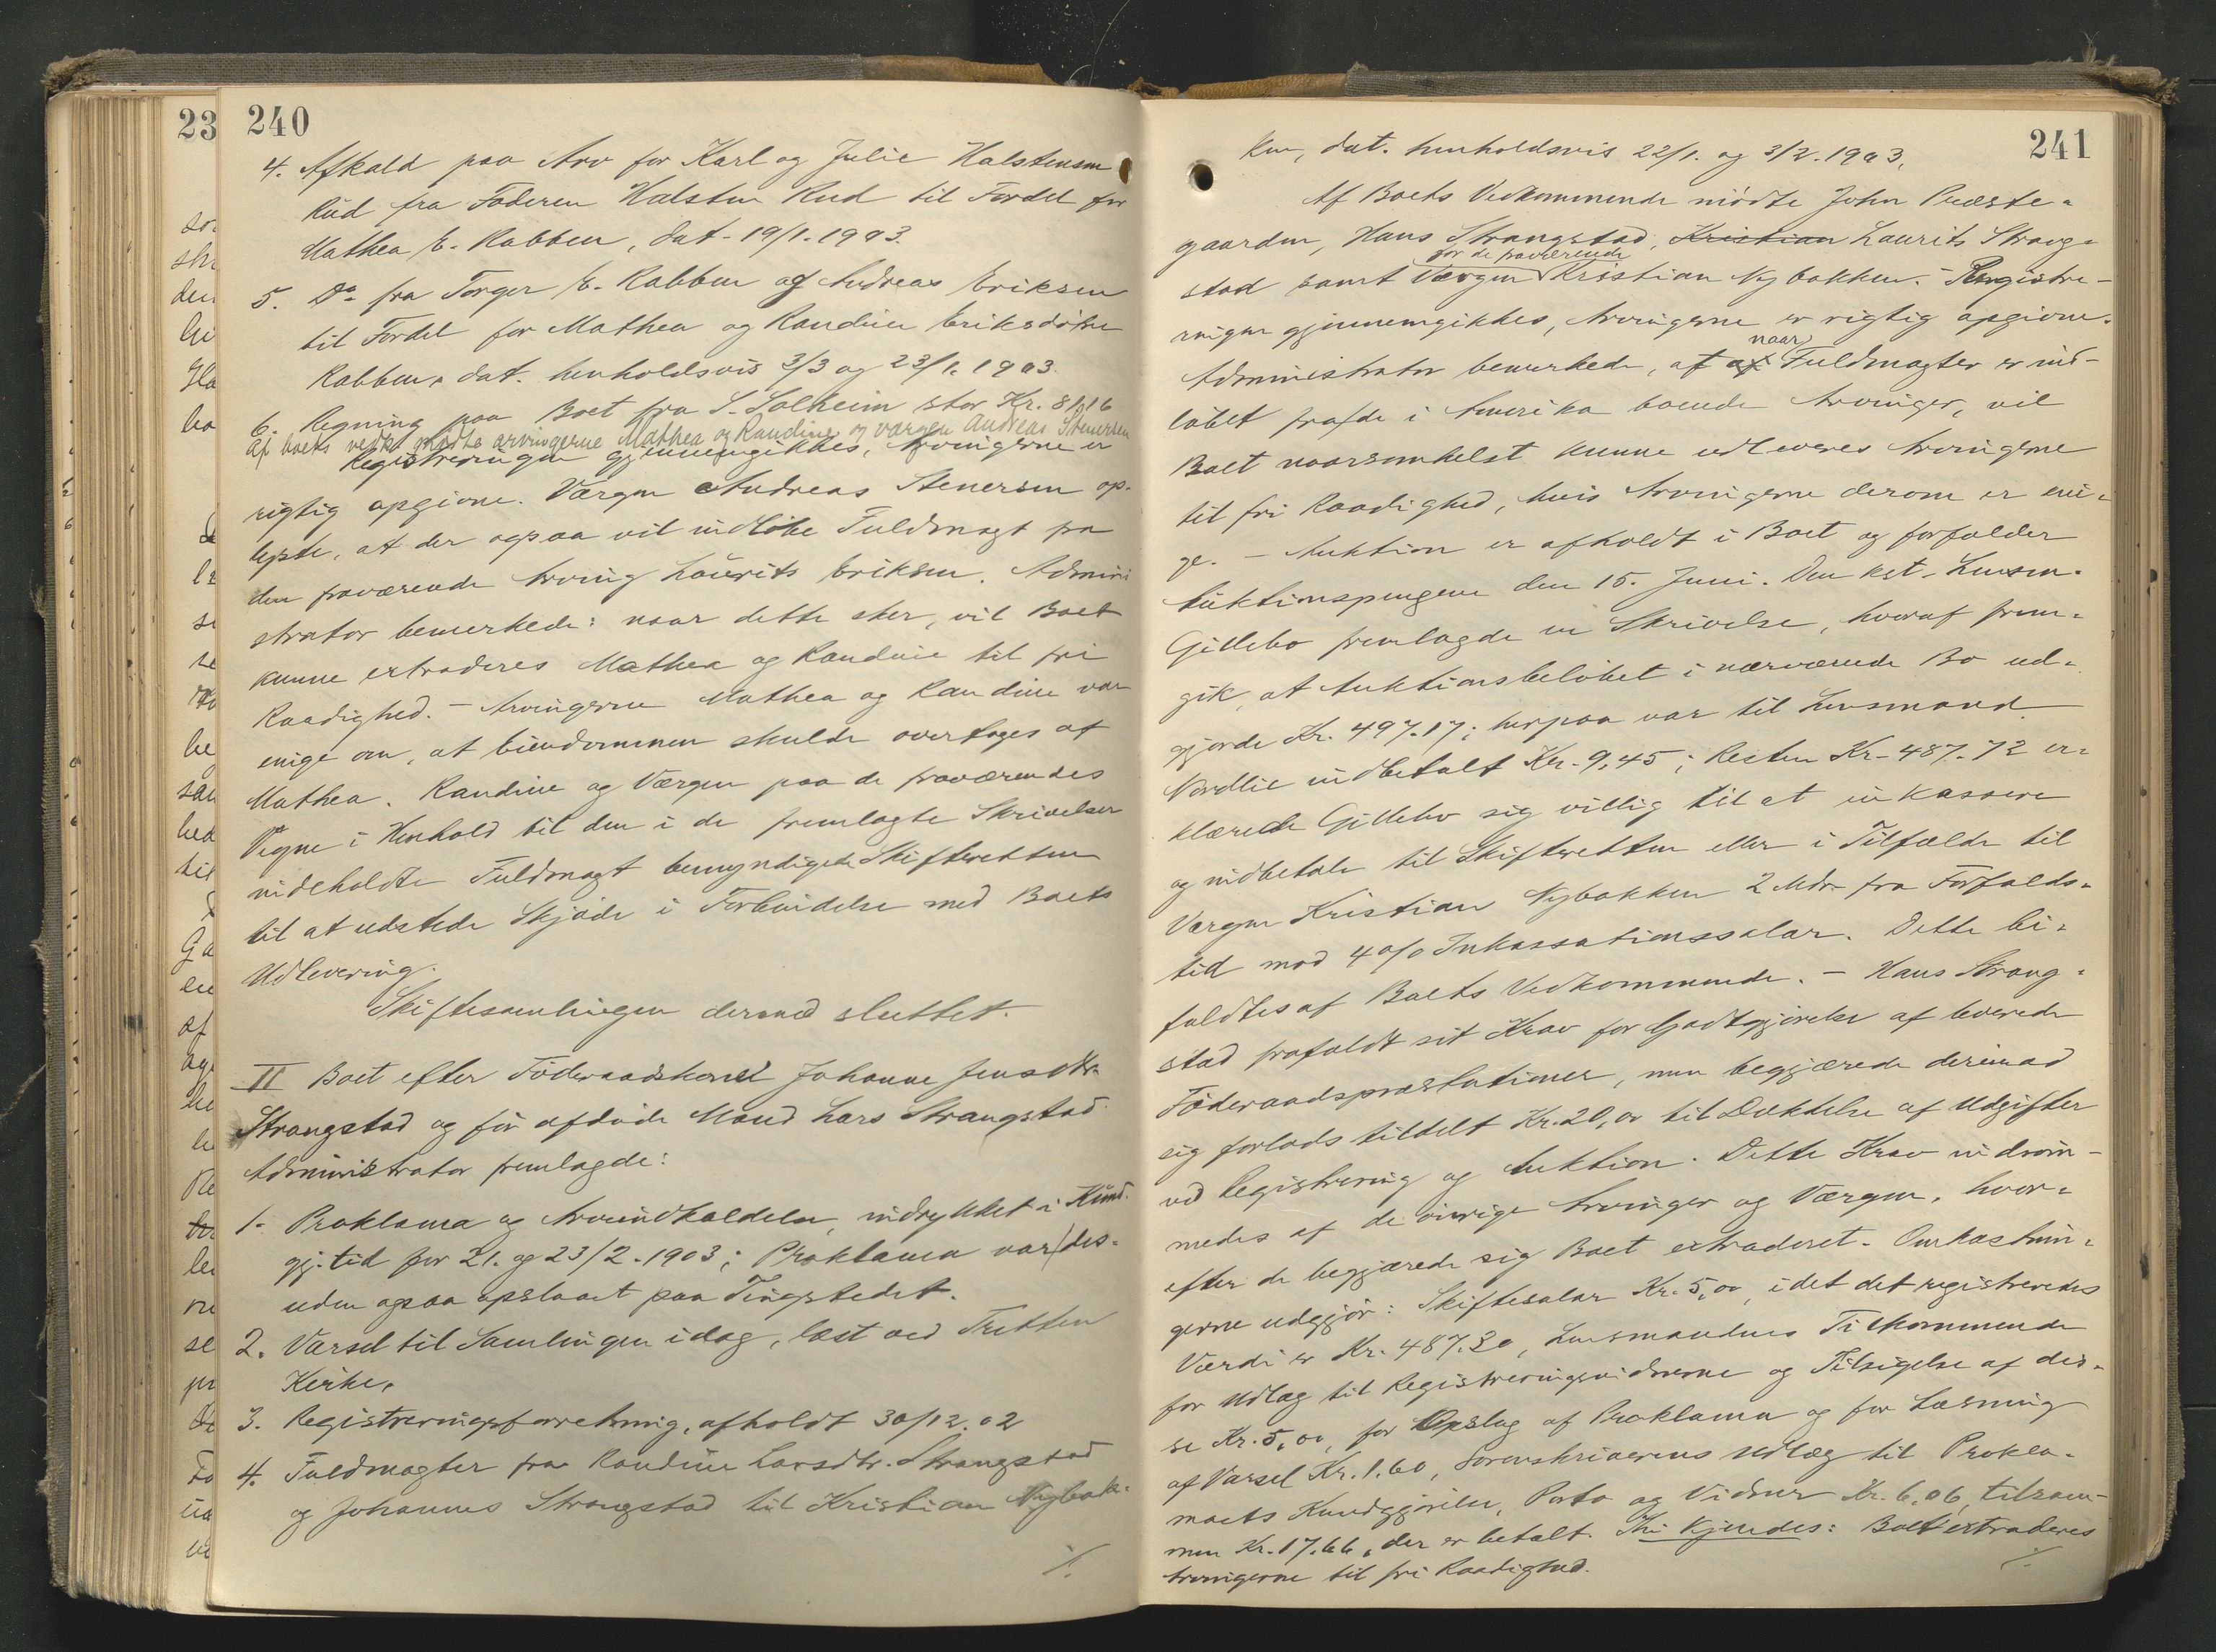 240
4. Afkald paa Arv for Karl og Julie Halstensen
Rud fra Faderen Halsten Rud til Fordel for
Mathea E. Rabben, dat. 19/1. 1903.
5. Do fra Torger E. Rabben og Andreas Eriksen
til Fordel for Mathea og Randine Eriksdötre
Rabben, dat. henholdsvis 3/3 og 23/1. 1903.
6. Regning paa Boet fra S. Solheim stor Kr. 81,16
Af boets vedk. mødte arvingerne Mathea og Randine og vargen Andreas Stenersen
Registreringen gjennemgikkes, Arvingerne er
rigtig opgivne. Værgen Andreas Stenersen op-
lyste, at der ogsaa vil indlöbe Fuldmagt fra
den fraværende Arving Laurits Eriksen. Admini
strator bemerkede: naar dette sker, vil Boet
kunne extraderes Mathea og Randine til fri
Raadighed. – Arvingerne Mathea og Randine var
enige om, at Eiendommen skulde overtages af
Mathea. Randine og Værgen paa de fraværendes
Vegne i Henhold til den i de fremlagte Skrivelser
indeholdte Fuldmagt bemyndigede Skifteretten
til at udstede Skjöde i Forbindelse med Boets
Udlevering.
Skiftesamlingen dermed sluttet.
II Boet efter Föderaadskone Johanne Jensdtr.
Strangstad og för afdöde Mand Lars Strangstad
Administrator fremlagde:
1. Proklama og Arveindkaldelse, indrykket i Kund.
gj. tid for 21. og 23/2. 1903; Proklama var des-
uden ogsaa opslaaet paa Tingstedet.
2. Varsel til Samlingen idag, læst ved Tretten
Kirke.
3. Registreringsforretning, afholdt 30/12. 02
4. Fuldmagter fra Randine Larsdtr. Strangstad
og Johannes Strangstad til Kristian Nybak-
./.
241
ken, dat. henholdsvis 22/1. og 3/2. 1903.
Af Boets Vedkommende mödte John Præste-
gaarden, Hans Strangstad, Kristian Laurits Strang-
for de fraværende
stad samt Værgen Kristian Nybakken. – Registre-
ringen gjennemgikkes, Arvingerne er rigtig opgivne.
naar
Administrator bemerkede, at af Fuldmagter er ind-
löbet fra de i Amerika boende Arvinger, vil
Boet naarsomhelst kunne udleveres Arvingerne
til fri Raadighed, hvis Arvingerne derom er eni-
ge. – Auktion er afholdt i Boet og forfalder
Auktionspengene den 15. Juni. Den kst. Lensm.
Gillebo fremlagde en Skrivelse, hvoraf frem-
gik, at Auktionsbelöbet i nærværende Bo ud-
gjorde Kr. 497.17; herpaa var til Lensmand
Nordlie indbetalt Kr. 9,45; Resten Kr. 487.72 er-
klærede Gillebo sig villig til at inkassere
og indbetale til Skifteretten eller i Tilfælde til
Værgen Kristian Nybakken 2 Mdr. fra Forfalds-
tid mod 4 0/0 Inkassationssalær. Dette bi-
faldtes af Boets Vedkommende. – Hans Strang-
stad frafaldt sit Krav for Godtgjörelse af leverede
Föderaadspræstationer, men begjærede derimod
sig forlods tildelt Kr. 20,00 til Dækkelse af Udgifter
ved Registrering og Auktion. Dette Krav indröm-
medes af de övrige Arvinger og Værgen, hvor-
efter de begjærede sig Boet extraderet. Omkostnin-
gerne udgjör: Skiftesalær Kr. 5,00, idet det registreredes
Værdi er Kr. 487.30, Lensmandens Tilkommende
for Udlæg til Registreringsvidnerne og Tilsigelse af dis-
se Kr. 5,00, for Opslag af Proklama og for Læsning
af Varsel Kr. 1.60, Sorenskriverens Udlæg til Prokla-
maets Kundgjörelse, Porto og Vidner Kr. 6,06, tilsam-
men Kr. 17.66, der er betalt. Thi kjendes: Boet extraderes
Arvingerne til fri Raadighed.
./.